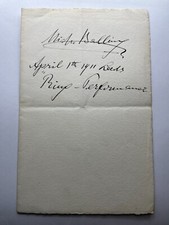 Michael Balling
April 1st 1911 Leeds
Ring - Performance